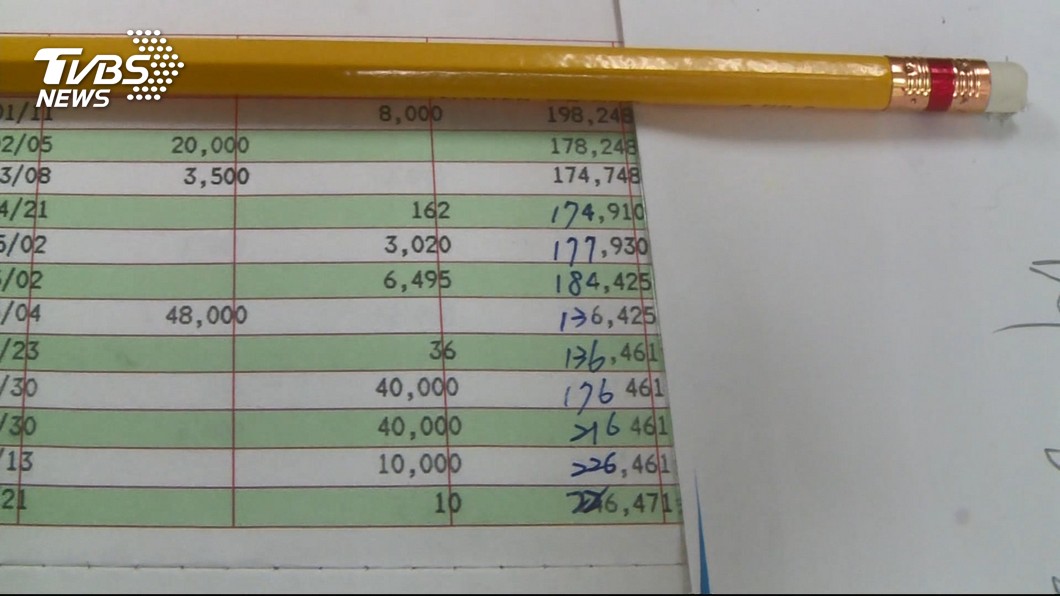 TVBS
NEWS
01/11 8,000 198,248
02/05 20,000 178,248
3/08 3,500 174,748
4/21 162 174,910
5/02 3,020 177,930
/02 6,495 184,425
/04 48,000 136,425
/23 36 136,461
/30 40,000 176 461
/30 40,000 216 461
/13 10,000 226,461
21 10 6,471